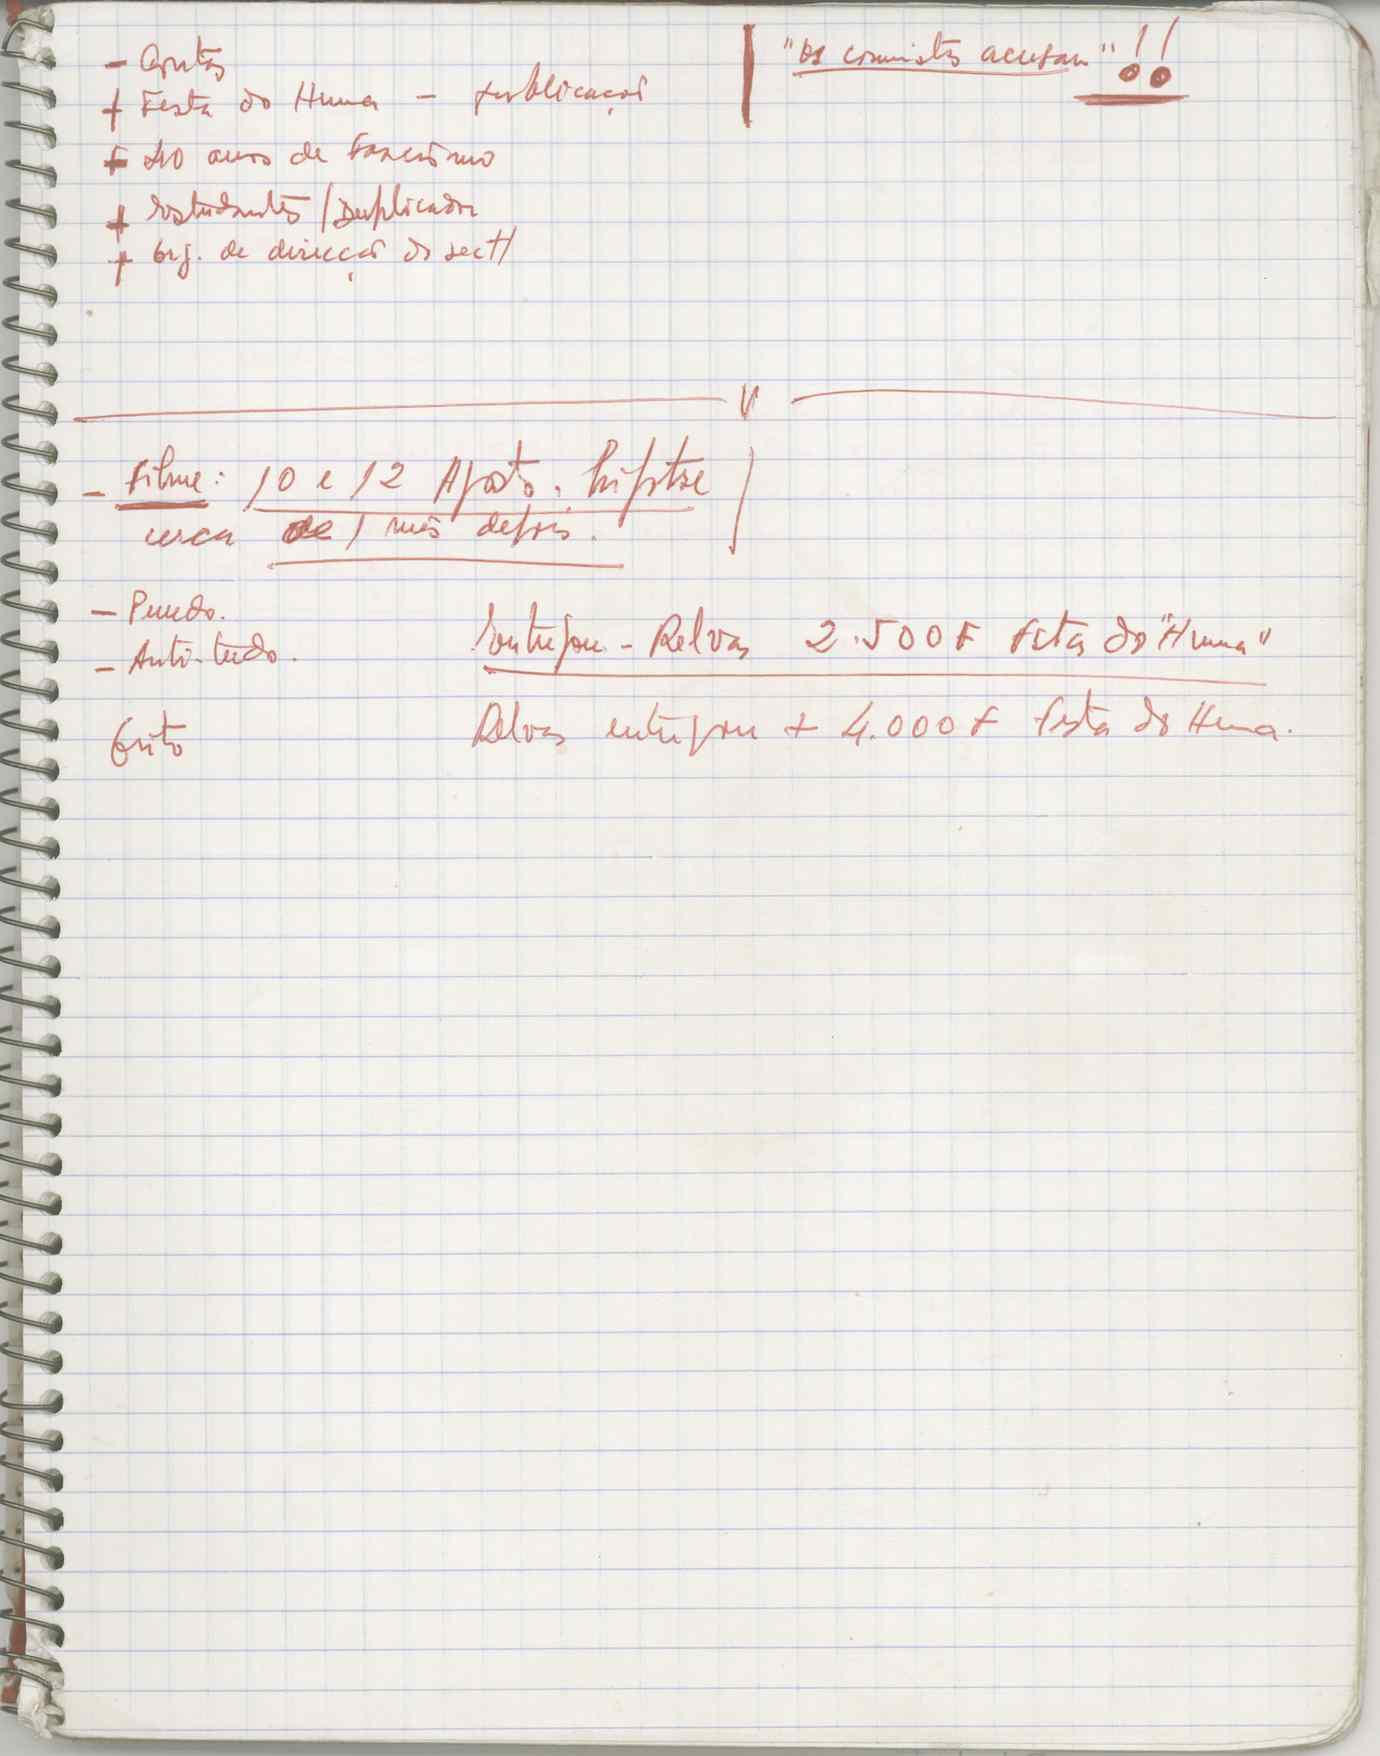 - 
+ Festa do Huma - publicação
+ 40 anos de Fascismo
+ Estudantes / Duplicador
+ Org. de direcção do sect/
"Os comunistas acusam" !!
V
- Filme: 10 e 12 Agosto. hipótese
cerca de 1 mês depois.
- 
- Anti-tudo.
Entregou - Relvas 2.500 F Festa do "Huma"
Grito
Relvas entregou + 4.000 F Festa do Huma.